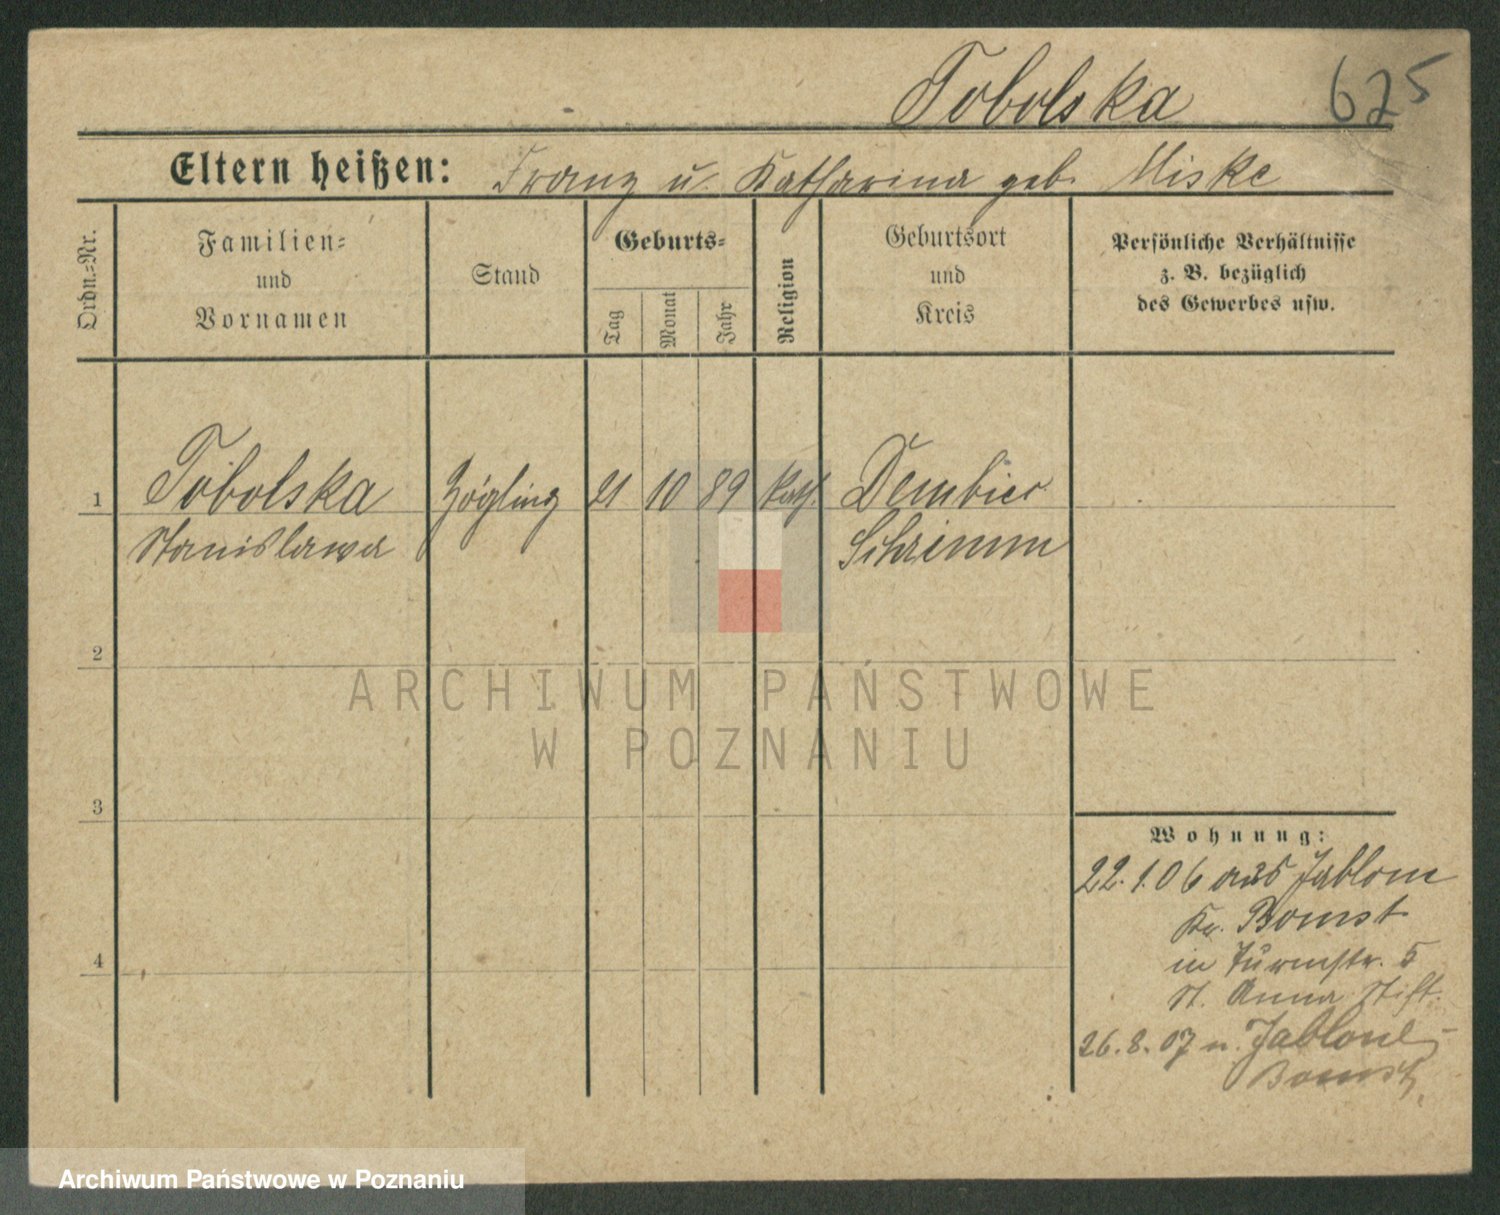 Tobolska 625
Eltern heißen: Franz u. Katharina geb. Miske
Ordn.=Nr.
Familien=
und
Vornamen
Stand
Geburts=
Tag
Monat
Jahr
Religion
Geburtsort
und
Kreis
Persönliche Verhältnisse
z. B. bezüglich
des Gewerbes usw.
1 Tobolska Zögling 21 10 89 kath. Dembiec
Stanislawa Schrimm
2
ARCHIWUM PAŃSTWOWE
W POZNANIU
3
Wohnung:
22.1.06 aus Jablone
Kr. Bomst
in Turmstr. 5
St. Anna Stift.
4
26.8.07 n. Jablone
Bomst
Archiwum Państwowe w Poznaniu